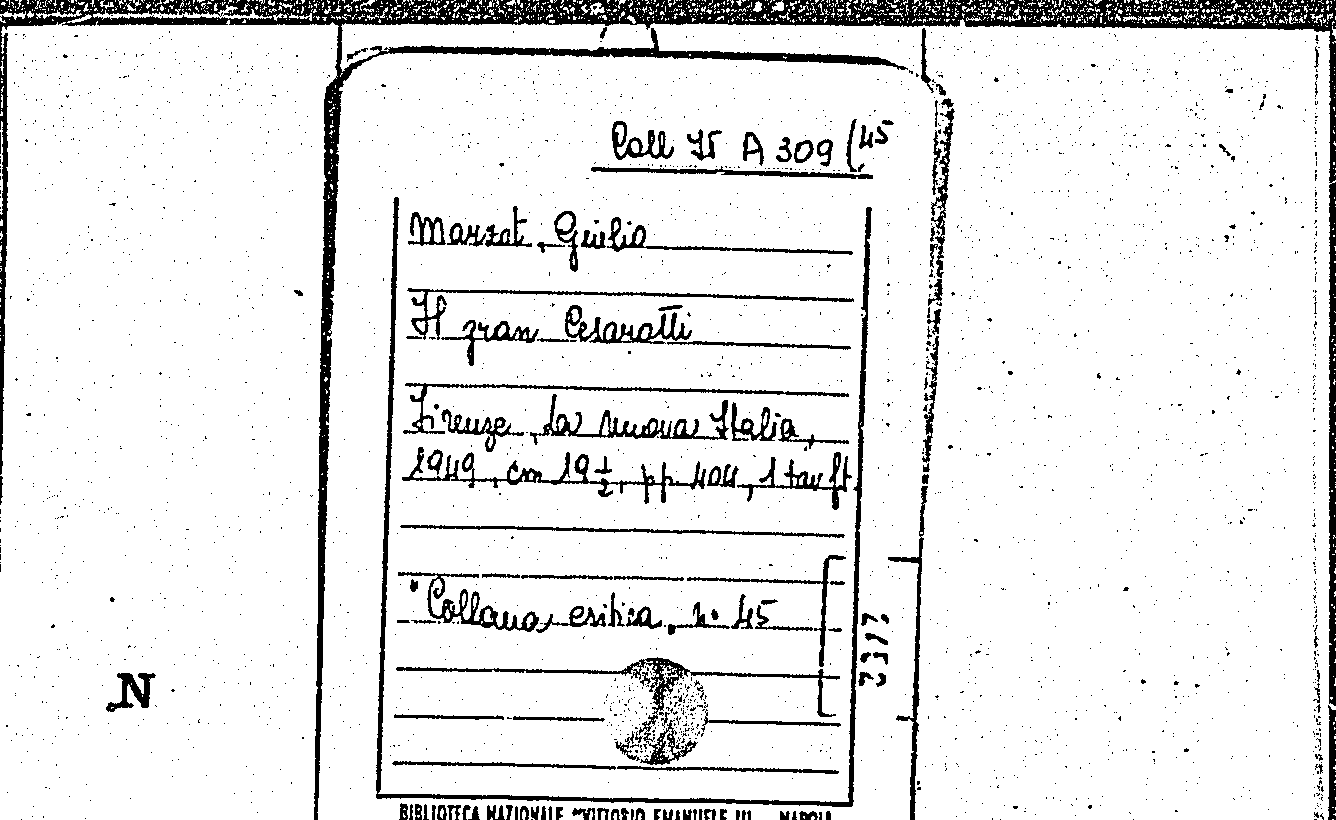 Coll It A 309 (45
Marzot, Giulio
Il gran Cesarotti
Firenze, La nuova Italia,
1949, cm 19 1/2, pp 404, 1 tav ft.
"Collana critica, n° 45
N
BIBLIOTECA NAZIONALE "VITTORIO EMANUELE III - NAPOLI